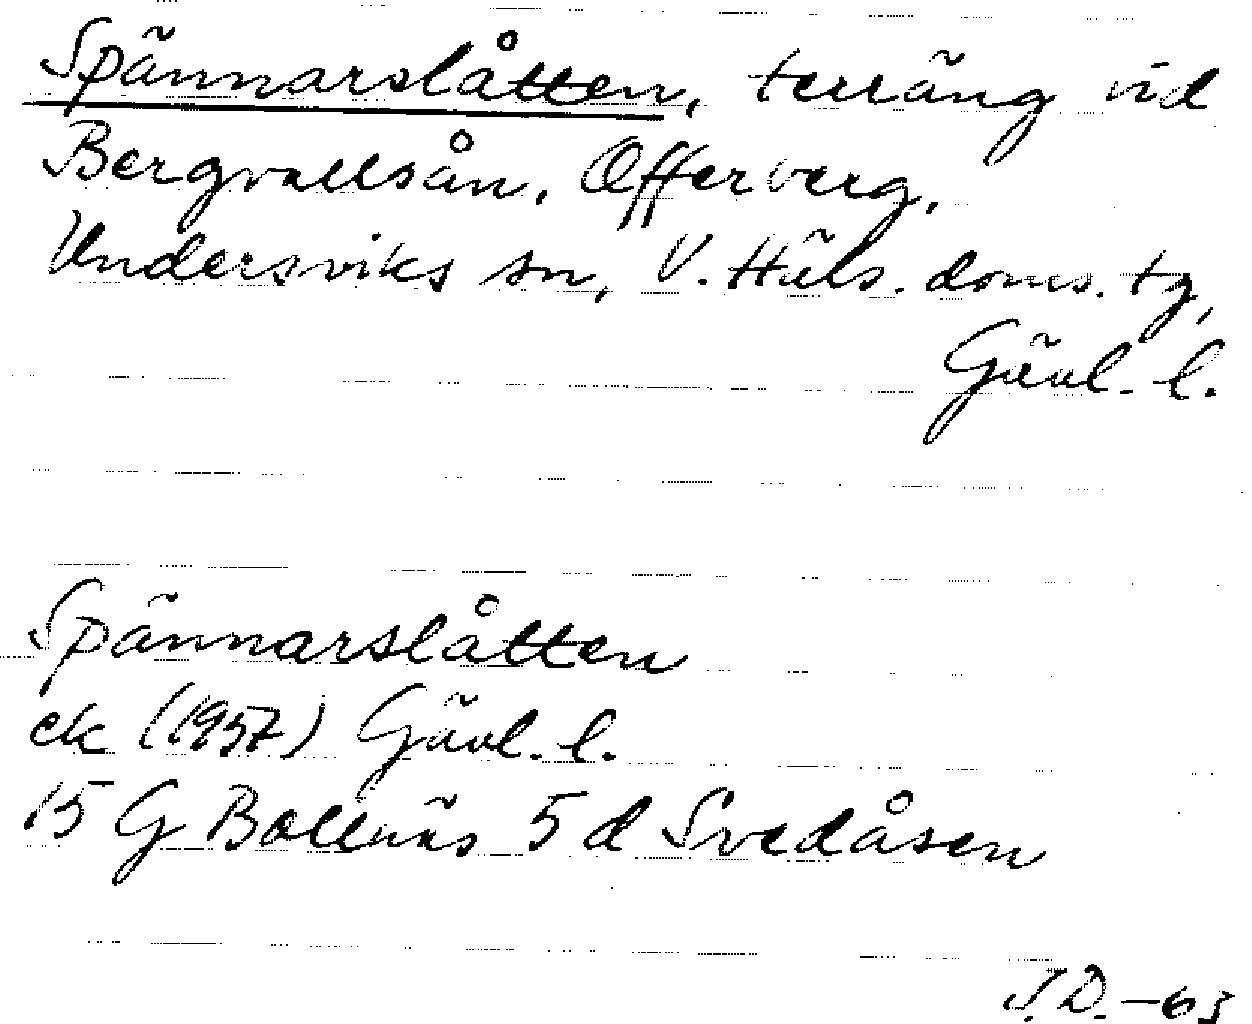 Spännarslåtten, terräng vid
Bergvallsån, Offerberg,
Undersviks sn, V. Häls. doms. tg,
Gävl. l.
Spännarslåtten
ek (1957) Gävl. l.
15 G Bollnäs 5 d Svedåsen
J.D. -63